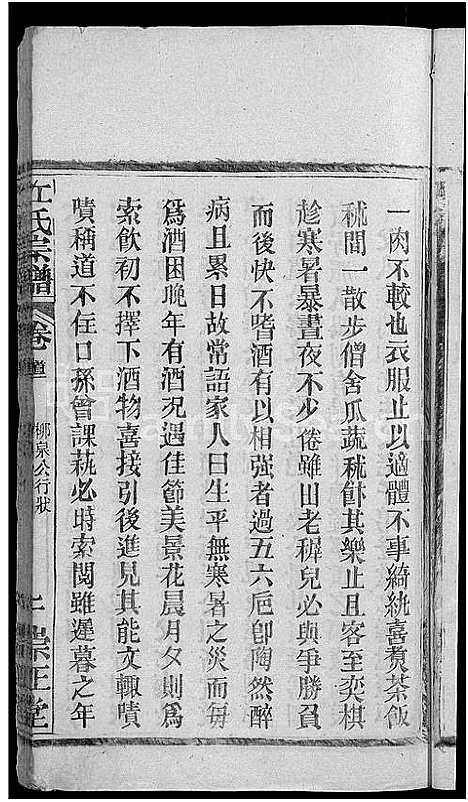 一肉不較也衣服止以適體不事綺紈喜煑茶飯
秫間一散步僧舍瓜蔬秫飰其樂止且客至奕棋
趁寒暑暴晝夜不少倦雖田老穉兒必與爭勝負
而後快不嗜酒有以相强者過五六巵卽陶然醉
病且累日故常語家人曰生平無寒暑之災而每
爲酒困晚年有酒况遇佳節美景花晨月夕則爲
索飲初不擇下酒物喜接引後進見其能文輙嘖
嘖稱道不住口孫曾課蓺必時索閱雖遲暮之年
氏宗譜
卷
首
柳泉公行狀
崇正堂